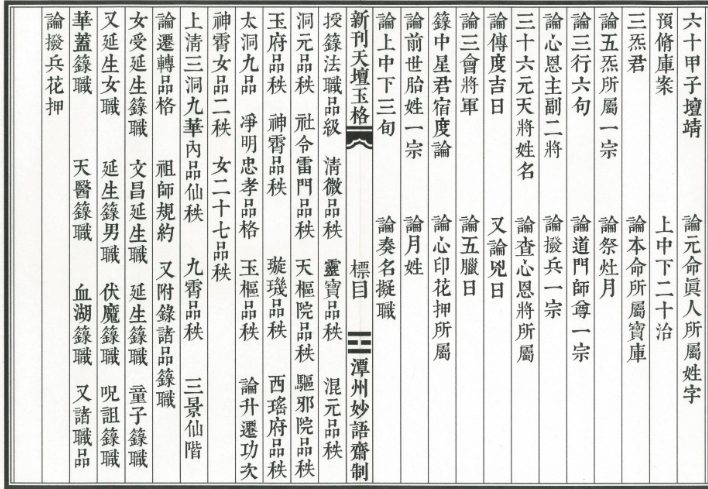 六十甲子壇靖 論元命眞人所屬姓字
預脩庫案 上中下二十治
三炁君 論本命所屬寶庫
論五炁所屬一宗 論祭灶月
論三行六句 論道門師尊一宗
論心恩主副二將 論撥兵一宗
三十六元天將姓名 論查心恩將所屬
論傳度吉日 又論兇日
論三會將軍 論五臘日
籙中星君宿度論 論心印花押所屬
論前世胎姓一宗 論月姓
論上中下三旬 論奏名擬職
新刊天壇玉格 標目 潭州妙語齋制
授籙法職品級 清微品秩 靈寶品秩 混元品秩
洞元品秩 社令雷門品秩 天樞院品秩 驅邪院品秩
玉府品秩 神霄品秩 璇璣品秩 西瑤府品秩
太洞九品 淨明忠孝品格 玉樞品秩 論升遷功次
神霄女品二秩 女二十七品秩
上清三洞九華內品仙秩 九霄品秩 三景仙階
論遷轉品格 祖師規約 又附錄諸品籙職
女受延生籙職 文昌延生職 延生籙職 童子籙職
又延生女職 延生籙男職 伏魔籙職 呪詛籙職
華蓋籙職 天醫籙職 血湖籙職 又諸職品
論撥兵花押